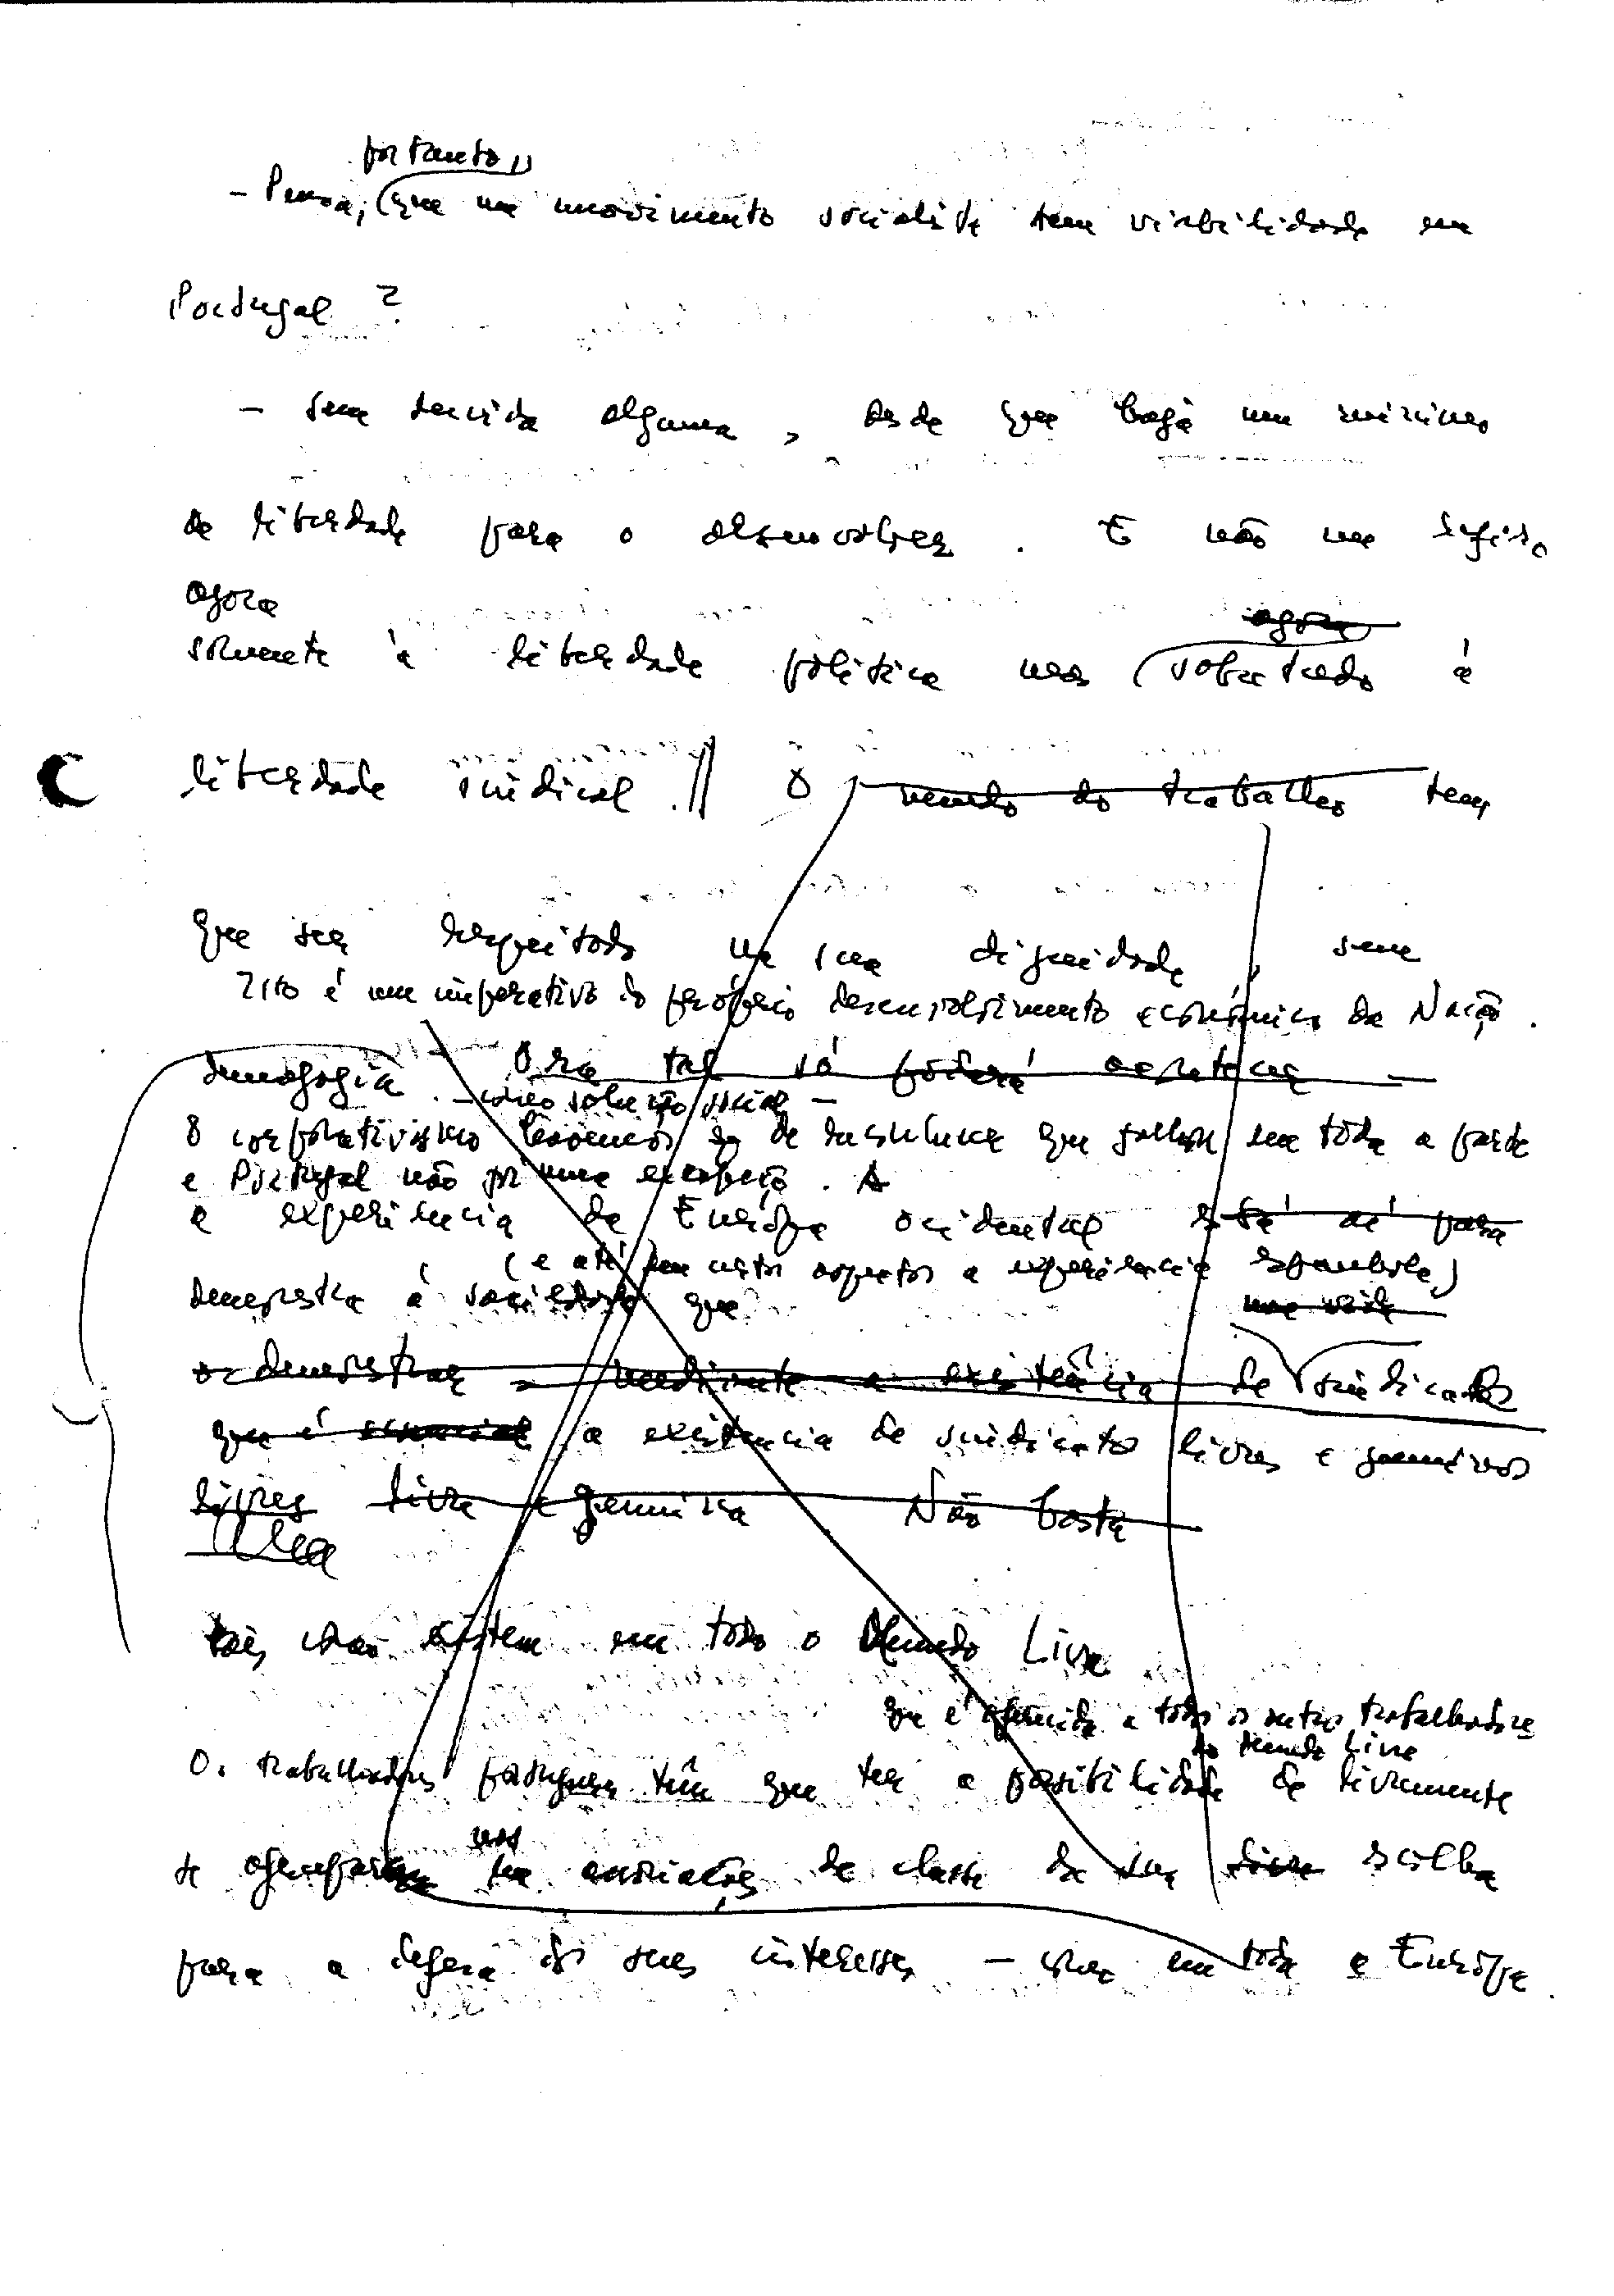 portanto,
- Pensa, que um movimento socialista tem viabilidade em
Portugal?
- Sem dúvida alguma, desde que haja um mínimo
de liberdade para o desenvolver. E não me refiro
agora
somente à liberdade política mas sobretudo à
agora
liberdade sindical. // O mundo do trabalho tem
que ser respeitado na sua dignidade, sem
Isto é um imperativo do próprio desenvolvimento económico da Nação.
demagogia. Ora tal só poderá acontecer -
- como solução social -
O corporativismo de que falhou em toda a parte
e Portugal não foi uma excepção. A
a experiência da Europa ocidental está aí para
(e até em certos aspectos a experiência espanhola)
demonstra à saciedade que
o demonstrar mediante a existência de sindicatos
que é essencial a existência de sindicatos livres e genuínos
livres livre e genuína Não basta
tais como existem em todo o Mundo Livre
que é a todos os outros trabalhadores
do Mundo Livre
Os trabalhadores portugueses têm que ter a possibilidade de livremente
nas
se agruparem em associações de classe da sua livre escolha
para a defesa dos seus interesses - como em toda a Europa.